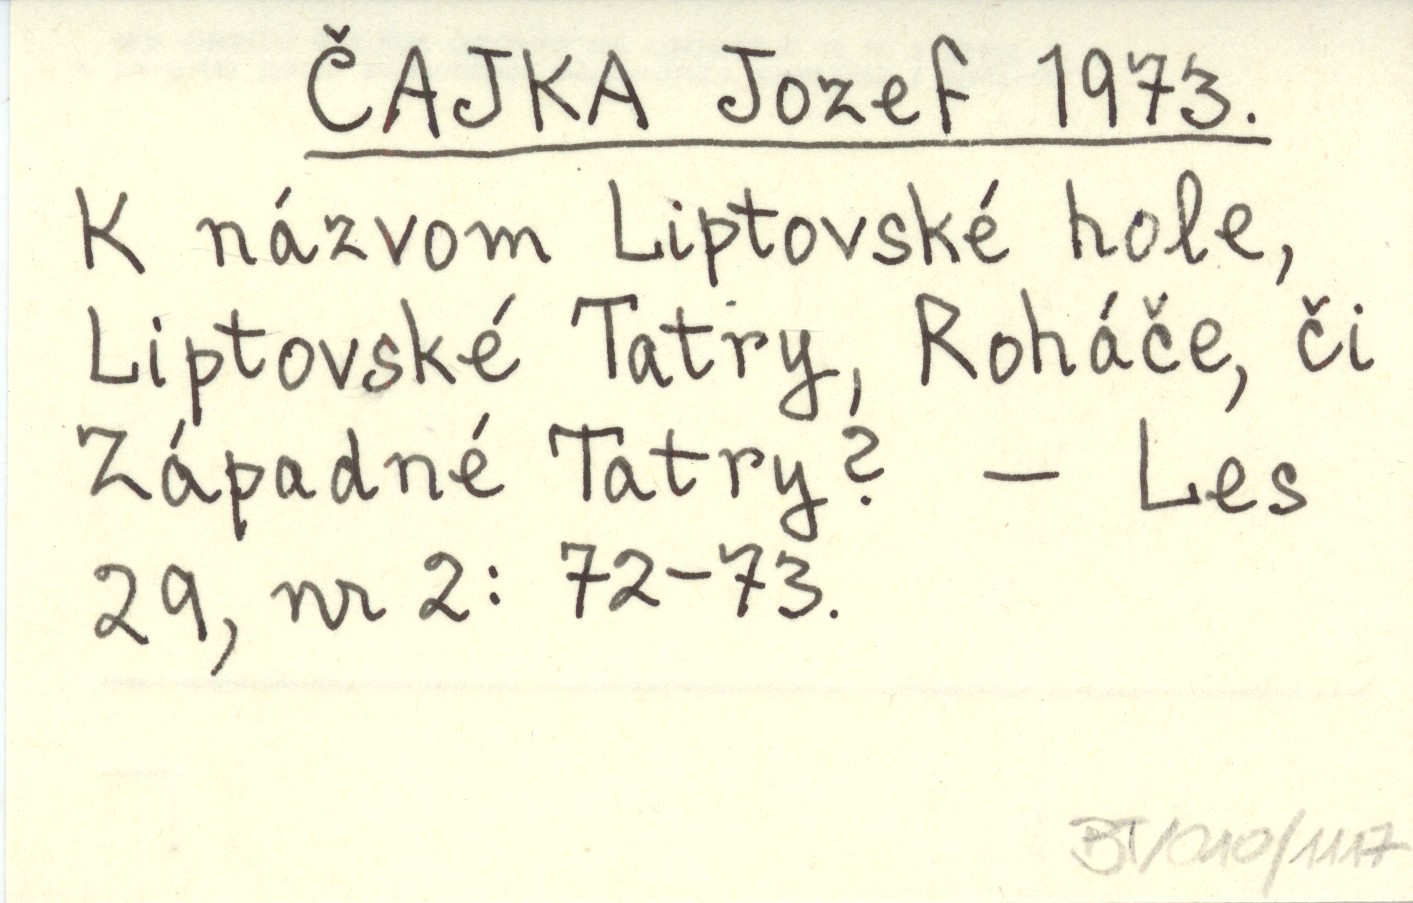 ČAJKA Jozef 1973.
K názvom Liptovské hole,
Liptovské Tatry, Roháče, či
Západné Tatry? – Les
29, nr 2: 72–73.
BT/010/1117